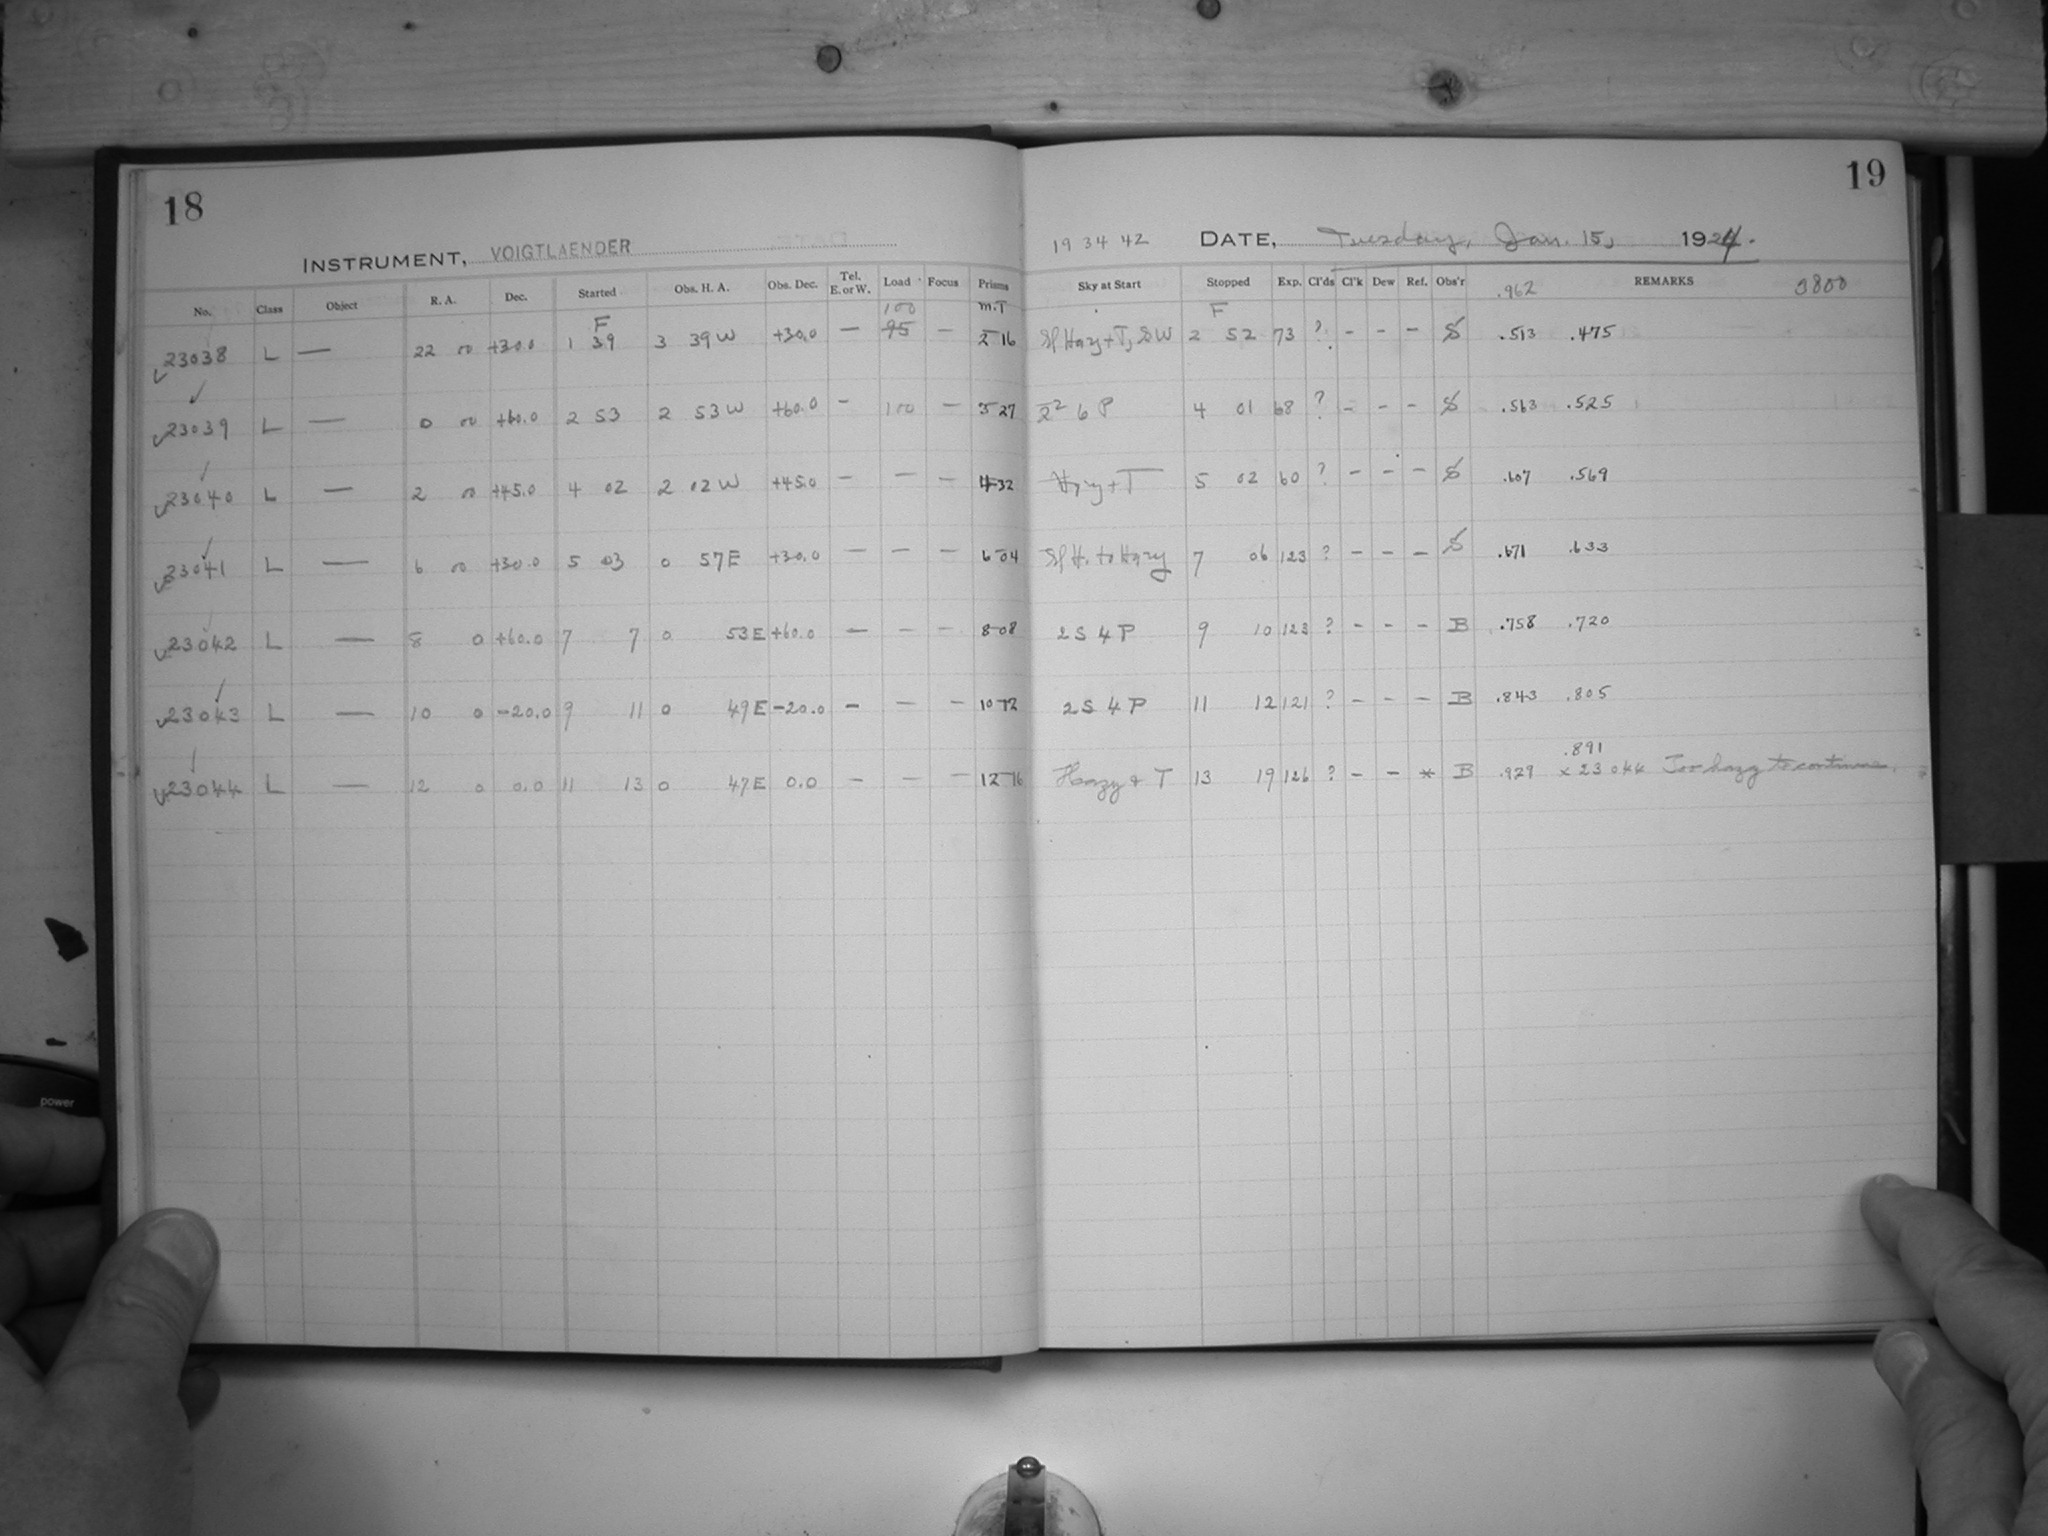 18
INSTRUMENT, VOIGTLAENDER
No. Class Object R. A. Dec. Started Obs. H. A. Obs. Dec. Tel. E. or W. Load Focus Prisms
F 100 m.T
23038 L — 22 00 +30.0 1 39 3 39 W +30.0 — 95 — 2 16
23039 L — 0 00 +60.0 2 53 2 53 W +60.0 — 100 — 3 27
23040 L — 2 00 +45.0 4 02 2 02 W +45.0 — — — 4 32
23041 L — 6 00 +30.0 5 03 0 57 E +30.0 — — — 6 04
23042 L — 8 0 +60.0 7 7 0 53 E +60.0 — — — 8 08
23043 L — 10 0 -20.0 9 11 0 49 E -20.0 — — — 10 12
23044 L — 12 0 0.0 11 13 0 47 E 0.0 — — — 12 16
19
19 34 42 DATE, Tuesday, Jan. 15, 1924.
Sky at Start Stopped Exp. Cl'ds Cl'k Dew Ref. Obs'r .962 REMARKS 0800
F
Sl Hazy + T, SW 2 52 73 ? - - - S .513 .475
6 P 4 01 68 ? - - - S .563 .525
Hazy + T 5 02 60 ? - - - S .607 .569
Sl H. to Hazy 7 06 123 ? - - - S .671 .633
2 S 4 P 9 10 123 ? - - - B .758 .720
2 S 4 P 11 12 121 ? - - - B .843 .805
.891
Hazy & T 13 19 126 ? - - * B .929 x 23044 Too hazy to continue.
power